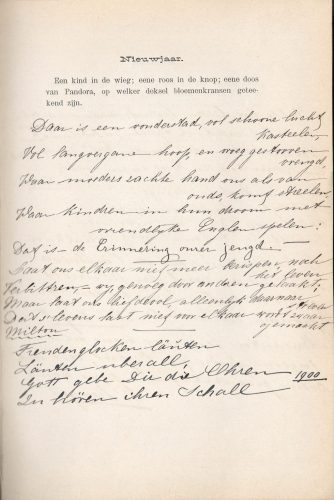 Nieuwjaar.
Een kind in de wieg; eene roos in de knop; eene doos
van Pandora, op welker deksel bloemenkransen getee-
kend zijn.
Daar is een wonderstad, vol schoone lucht
kasteelen,
Vol langvergane hoop, en vroeg gestorven
vreugd,
Waar moeders zachte hand ons als van
ouds, komt streelen
Waar kindren in hun droom met
vriendlijke Englen spelen:
Dat is de Erinnering onzer jeugd.
Laat ons elkaar niet meer krispen, noch
het leven
verbittren, - wij genoeg door anderen gelaakt,
Maar laat ons liefdevol, alleenlijk daarnaar
streven
Dat 's levens last niet voor elkaar wordt zwaar
gemaakt
Milton
Freudenglocken läuten
Läuten uberall,
Gott gebe Dir die Ohren
Zu hören ihren Schall
1900